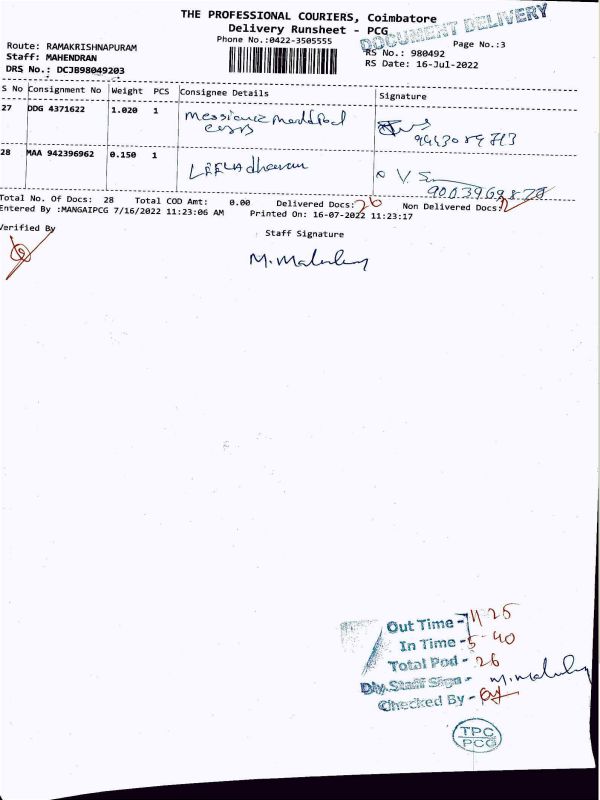 THE PROFESSIONAL COURIERS, Coimbatore
Delivery Runsheet - PCG
DOCUMENT DELIVERY
Phone No.:0422-3505555
Page No.:3
Route: RAMAKRISHNAPURAM
RS No.: 980492
Staff: MAHENDRAN
RS Date: 16-Jul-2022
DRS No.: DCJB98049203
S No Consignment No Weight PCS Consignee Details Signature
27 DDG 4371622 1.020 1
28 MAA 942396962 0.150 1 LEELAdharan
Total No. Of Docs: 28 Total COD Amt: 0.00 Delivered Docs: 26 Non Delivered Docs: 2
Entered By :MANGAIPCG 7/16/2022 11:23:06 AM Printed On: 16-07-2022 11:23:17
Verified By
Staff Signature
Out Time - 11 25
In Time - 5-40
Total Pod - 26
Dly.Staff Sign -
Checked By -
TPC
PCG